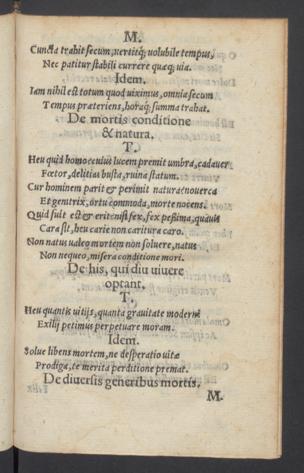 M.
Cuncta trahit secum, vertitq; volubile tempus,
Nec patitur stabili currere quæq; via.
Idem.
Iam nihil est totum quod viximus, omnia secum
Tempus præteriens, horaq; summa trahat.
De mortis conditione
& natura.
T.
Heu quid homo cuius lucem premit umbra, cadauer
Fœtor, delitias busta, ruina statum.
Cur hominem parit & perimit natura nouerca
Et genitrix, ortu commoda, morte nocens.
Quid fuit est & erit nisi fex, fex pessima, quãuis
Cara sit, heu carie non caritura caro.
Non natus valeo mortem non soluere, natus
Non nequeo, misera conditione mori.
De his, qui diu viuere
optant.
T.
Heu quantis vitijs, quanta grauitate
Exilij petimus perpetuare moram.
Idem.
Solue libens mortem, ne desperatio vitæ
Prodiga, te merita perditione premat.
De diuersis generibus mortis.
M.